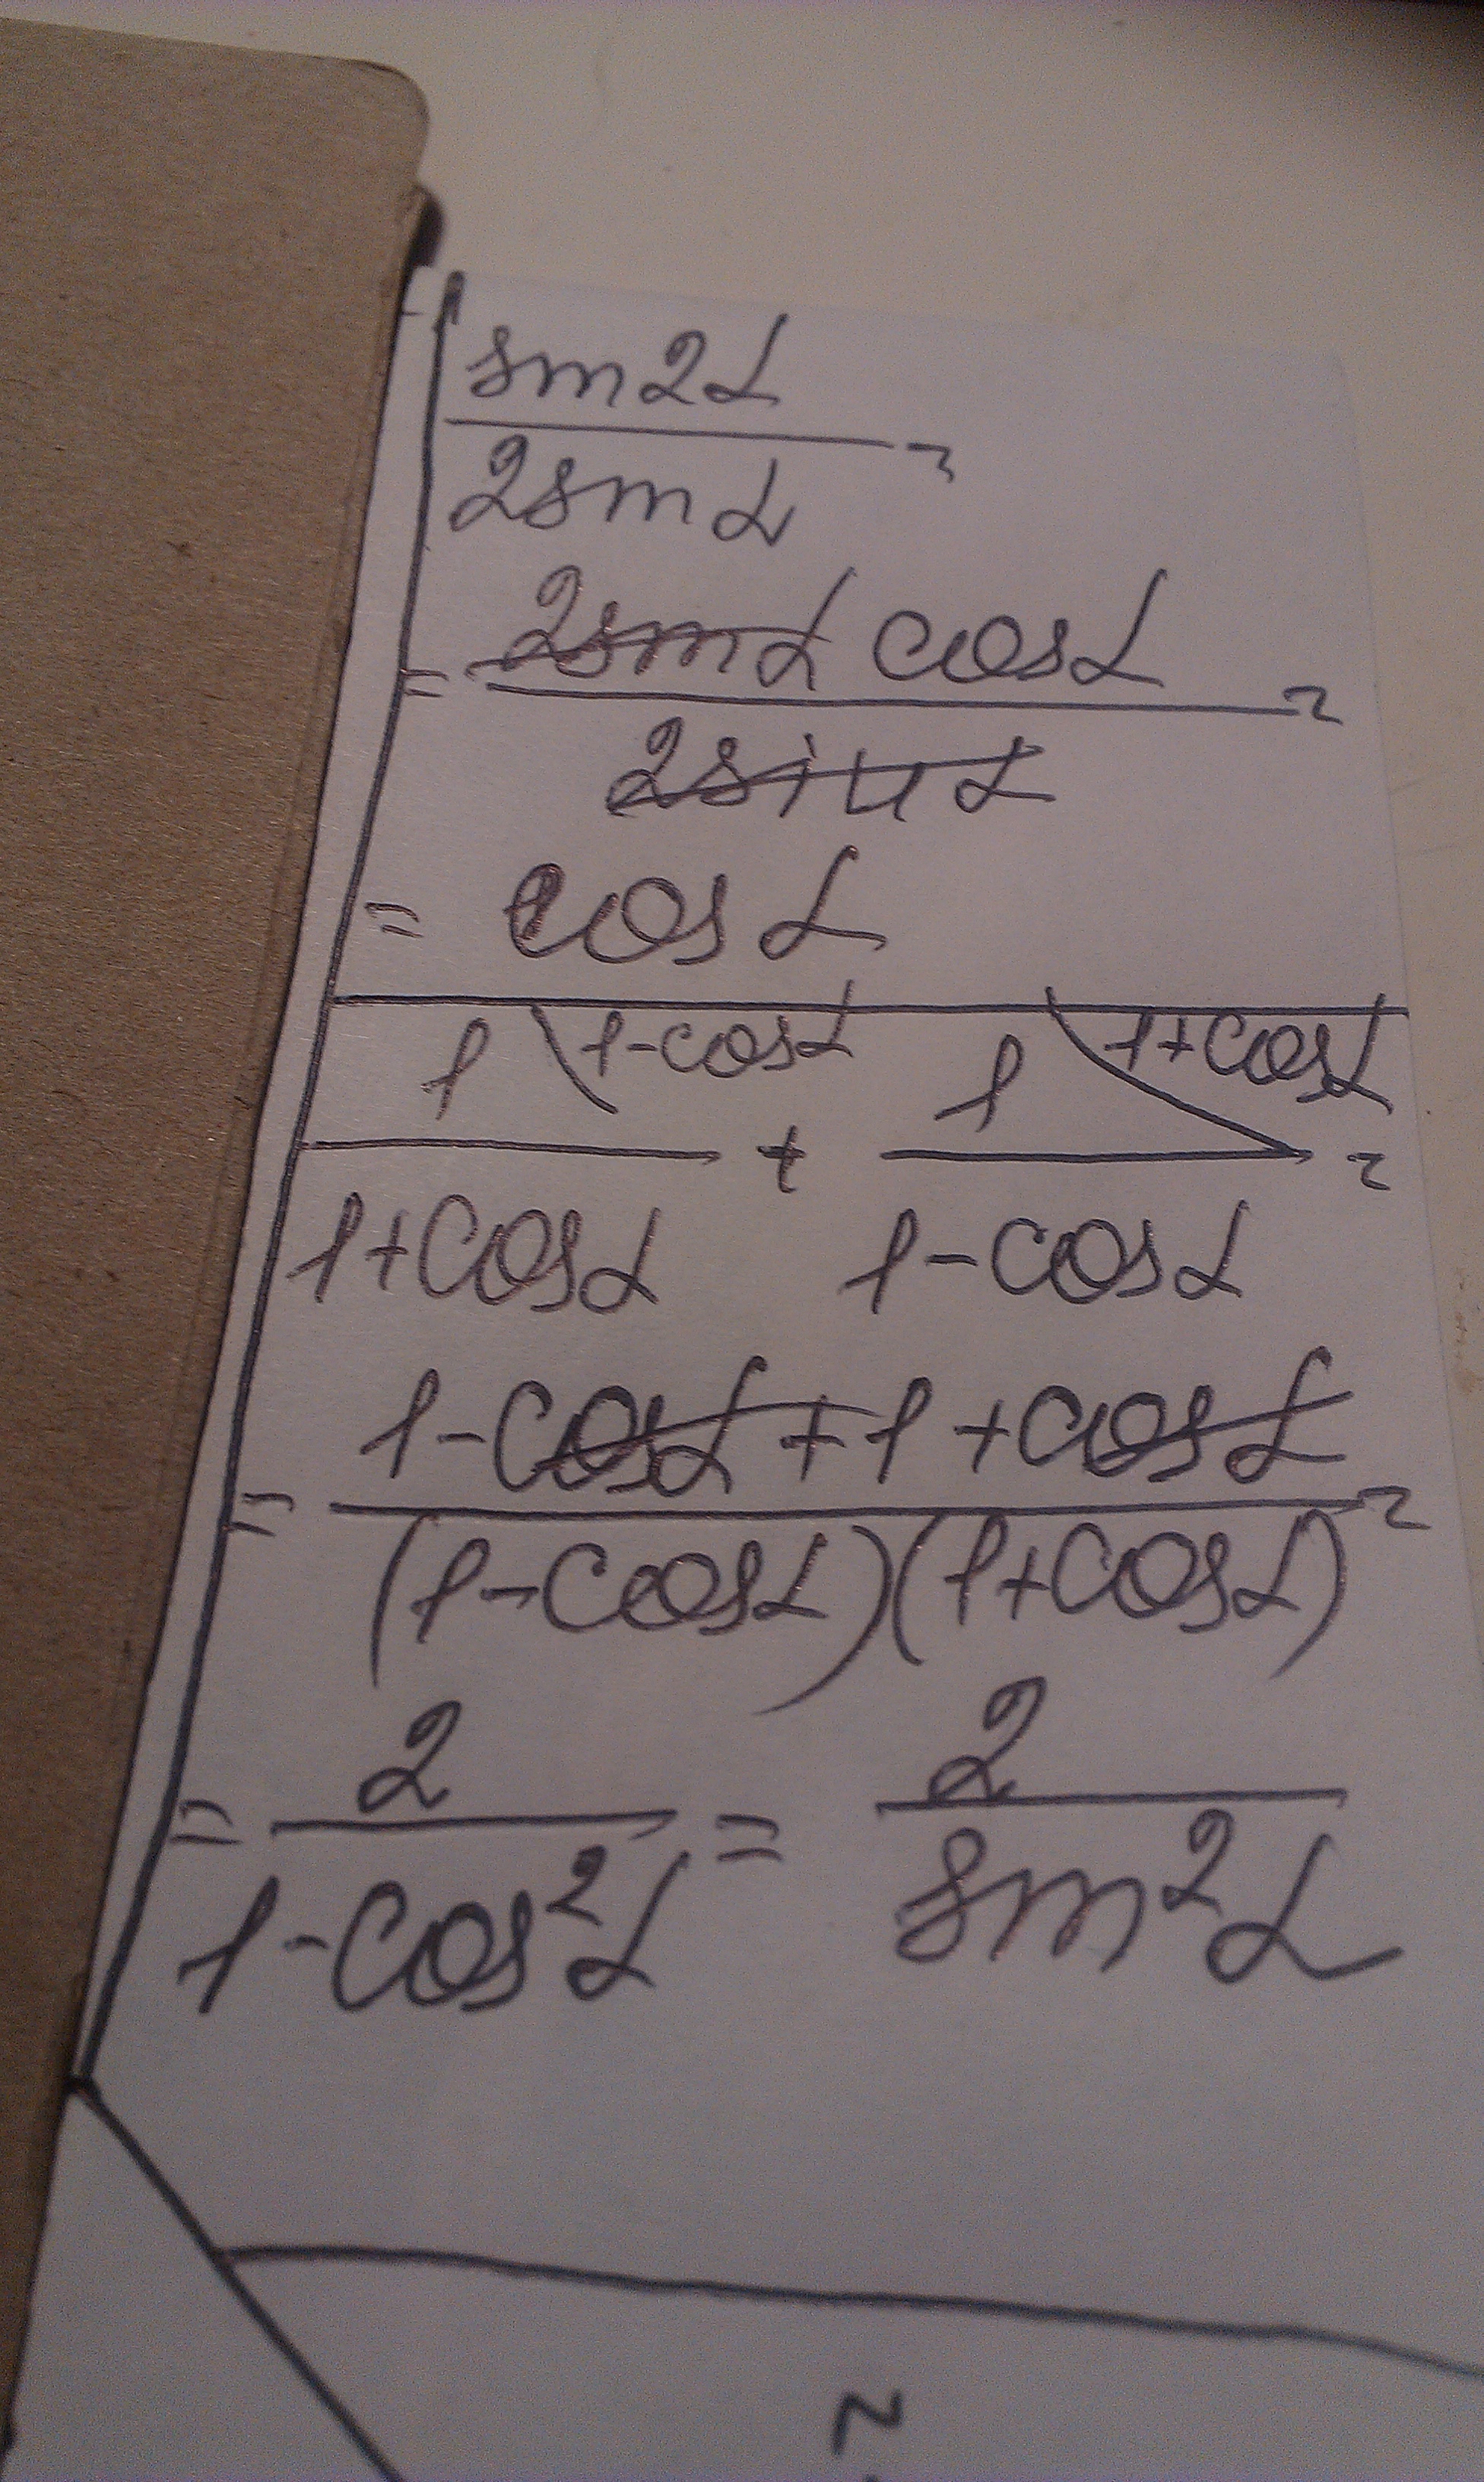 sin2α
――― =
2sinα
= 2sinα cosα / 2sinα =
= cosα
1 \1-cosα + 1 \1+cosα =
1+cosα 1-cosα
= 1-cosα+1+cosα / (1-cosα)(1+cosα) =
= 2 / 1-cos²α = 2 / sin²α
~